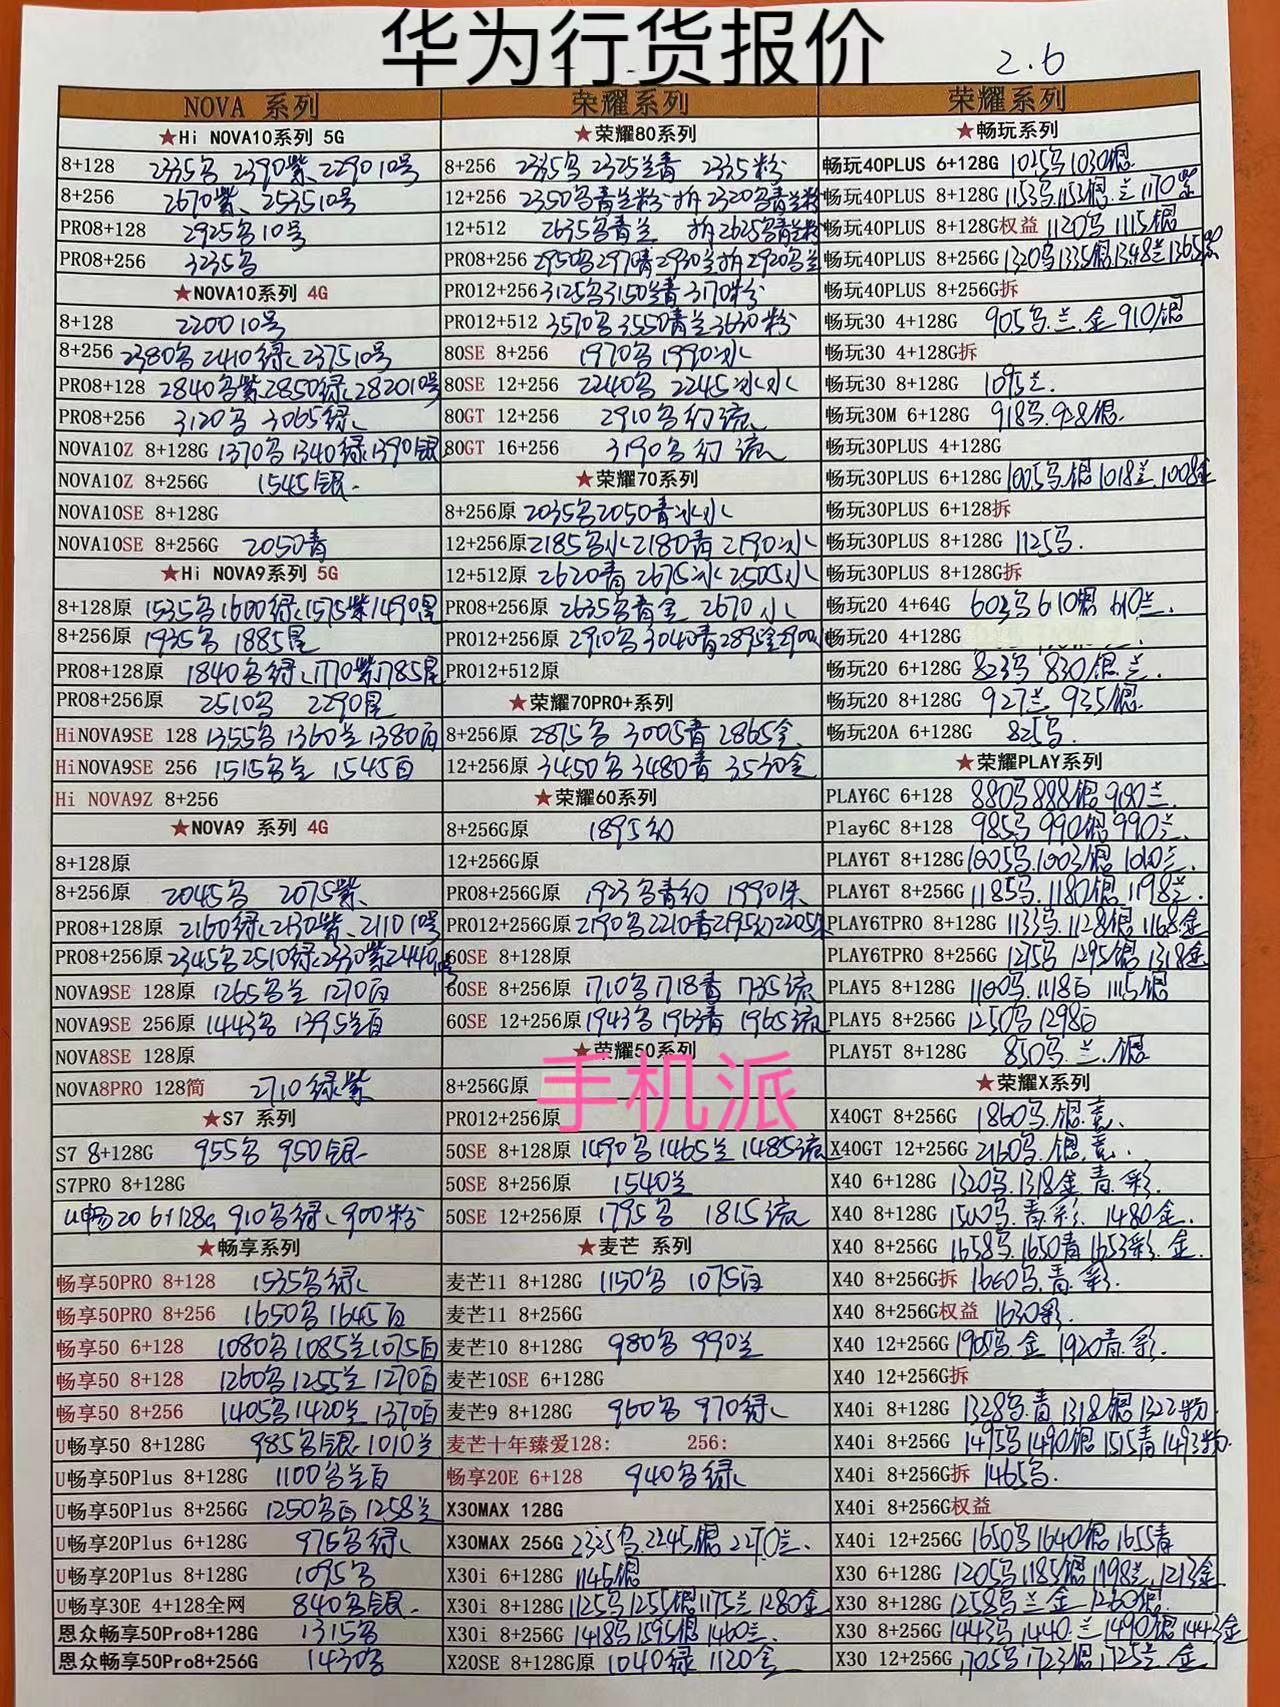 华为行货报价
2.6
NOVA 系列
★Hi NOVA10系列 5G
8+128 2335乌 2390紫、2290 10号
8+256 2670紫、2535 10号
PRO8+128 2925乌 10号
PRO8+256 3235乌
★NOVA10系列 4G
8+128 2200 10号
8+256 2380乌 2410绿、2375 10号
PRO8+128 2840乌紫、2850绿、2820 10号
PRO8+256 3120乌 3065绿、
NOVA10Z 8+128G 1370乌 1340绿 1390银
NOVA10Z 8+256G 1545银.
NOVA10SE 8+128G
NOVA10SE 8+256G 2050青
★Hi NOVA9系列 5G
8+128原 1535乌 1600绿、1575紫 1490星
8+256原 1935乌 1885星
PRO8+128原 1840乌绿、1770紫 1785星
PRO8+256原 2510乌 2290星
HiNOVA9SE 128 1355乌 1360兰 1380白
HiNOVA9SE 256 1515乌兰 1545白
Hi NOVA9Z 8+256
★NOVA9 系列 4G
8+128原
8+256原 2045乌 2075紫、
PRO8+128原 2160绿、2130紫、2110 10号
PRO8+256原 2345乌 2510绿、2330紫、2440 10号
NOVA9SE 128原 1265乌兰 1270白
NOVA9SE 256原 1443乌 1395兰白
NOVA8SE 128原
NOVA8PRO 128简 2710绿紫
★S7 系列
S7 8+128G 955乌 950银.
S7PRO 8+128G
U畅20 6+128G 910乌绿、900粉
★畅享系列
畅享50PRO 8+128 1535乌绿、
畅享50PRO 8+256 1650乌 1645白
畅享50 6+128 1080乌 1085兰 1075白
畅享50 8+128 1260乌 1255兰 1270白
畅享50 8+256 1405乌 1420兰 1370白
U畅享50 8+128G 985乌银、1010兰
U畅享50Plus 8+128G 1100乌兰白
U畅享50Plus 8+256G 1250乌白 1258兰
U畅享20Plus 6+128G 975乌绿、
U畅享20Plus 8+128G 1095乌
U畅享30E 4+128全网 840乌银.
恩众畅享50Pro8+128G 1315乌
恩众畅享50Pro8+256G 1430乌
荣耀系列
★荣耀80系列
8+256 2335乌 2325兰青 2335粉
12+256 2350乌青兰粉 拆2320乌青兰粉
12+512 2635乌青兰 拆2625乌青兰粉
PRO8+256 2950乌 2970青 2930兰 拆2920乌兰
PRO12+256 3125乌 3150兰青 3170粉
PRO12+512 3570乌 3550青兰 3630粉
80SE 8+256 1970乌 1990冰
80SE 12+256 2240乌 2245冰水
80GT 12+256 2910乌幻流
80GT 16+256 3190乌幻流
★荣耀70系列
8+256原 2035乌 2050青冰水
12+256原 2185乌水 2180青 2190冰
12+512原 2620青 2675冰 2505水
PRO8+256原 2635乌青金 2670水
PRO12+256原 2910乌 3040青 2895金 2900水
PRO12+512原
★荣耀70PRO+系列
8+256原 2875乌 3005青 2865金
12+256原 3450乌 3480青 3530金
★荣耀60系列
8+256G原 1895幻
12+256G原
PRO8+256G原 1923乌青幻 1990朱
PRO12+256G原 2190乌 2210青 2195幻 2205朱
60SE 8+128原
60SE 8+256原 1710乌 1718青 1735流
60SE 12+256原 1943乌 1963青 1965流
★荣耀50系列
手机派
8+256G原
PRO12+256原
50SE 8+128原 1490乌 1465兰 1485流
50SE 8+256原 1540兰
50SE 12+256原 1795乌 1815流
★麦芒 系列
麦芒11 8+128G 1150乌 1075白
麦芒11 8+256G
麦芒10 8+128G 980乌 990兰
麦芒10SE 6+128G
麦芒9 8+128G 960乌 970绿、
麦芒十年臻爱128: 256:
畅享20E 6+128 940乌绿、
X30MAX 128G
X30MAX 256G 2325乌.2245银 2270兰.
X30i 6+128G 1145银
X30i 8+128G 1125乌 1255银 1175兰 1280金
X30i 8+256G 1418乌 1595银 1460兰.
X20SE 8+128G原 1040绿 1120金
荣耀系列
★畅玩系列
畅玩40PLUS 6+128G 1025乌 1030银
畅玩40PLUS 8+128G 1153乌 1153银.兰 1170紫
畅玩40PLUS 8+128G权益 1120乌 1115银
畅玩40PLUS 8+256G 1320乌 1335银 1348兰 1365紫
畅玩40PLUS 8+256G拆
畅玩30 4+128G 905乌.兰.金 910银
畅玩30 4+128G拆
畅玩30 8+128G 1095兰.
畅玩30M 6+128G 918乌.928银.
畅玩30PLUS 4+128G
畅玩30PLUS 6+128G 1005乌.银 1018兰.1008金
畅玩30PLUS 6+128拆
畅玩30PLUS 8+128G 1125乌.
畅玩30PLUS 8+128G拆
畅玩20 4+64G 603乌 610银 610兰.
畅玩20 4+128G
畅玩20 6+128G 823乌 830银.兰.
畅玩20 8+128G 927兰 935银.
畅玩20A 6+128G 825乌.
★荣耀PLAY系列
PLAY6C 6+128 880乌 888银 900兰.
Play6C 8+128 985乌 990银 990兰.
PLAY6T 8+128G 1005乌.1003银 1010兰.
PLAY6T 8+256G 1185乌.1180银 1198兰.
PLAY6TPRO 8+128G 1133乌.1128银 1168金
PLAY6TPRO 8+256G 1275乌 1295银 1318金
PLAY5 8+128G 1100乌.1118白 1115银
PLAY5 8+256G 1250乌 1298白
PLAY5T 8+128G 850乌.兰.银
★荣耀X系列
X40GT 8+256G 1860乌.银.竞.
X40GT 12+256G 2160乌.银.竞.
X40 6+128G 1320乌.1318金.青.彩.
X40 8+128G 1500乌.青.彩. 1480金.
X40 8+256G 1658乌.1650青 1653彩.金.
X40 8+256G拆 1660乌.青.彩.
X40 8+256G权益 1630彩.
X40 12+256G 1905乌.金 1920青.彩.
X40 12+256G拆
X40i 8+128G 1328乌.青 1318银 1322粉.
X40i 8+256G 1495乌 1490银 1515青 1493粉.
X40i 8+256G拆 1465乌.
X40i 8+256G权益
X40i 12+256G 1650乌 1640银 1655青
X30 6+128G 1205乌 1185银 1198兰.1213金
X30 8+128G 1258乌.兰.金 1260银.
X30 8+256G 1443乌 1440.兰 1490银 1443金
X30 12+256G 1705乌 1723银 1725兰.金